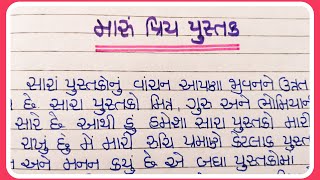 મારું પ્રિય પુસ્તક
સારાં પુસ્તકોનું વાંચન આપણા જીવનને ઉન્નત
છે. સારા પુસ્તકો મિત્ર, ગુરુ અને ભોમિયાની
સારે છે. આથી હું હંમેશા સારા પુસ્તકો મારી
રાખું છું મેં મારી રુચિ પ્રમાણે કેટલાક પુસ્ત
અને મનન કર્યું છે. એ બધા પુસ્તકોમાં